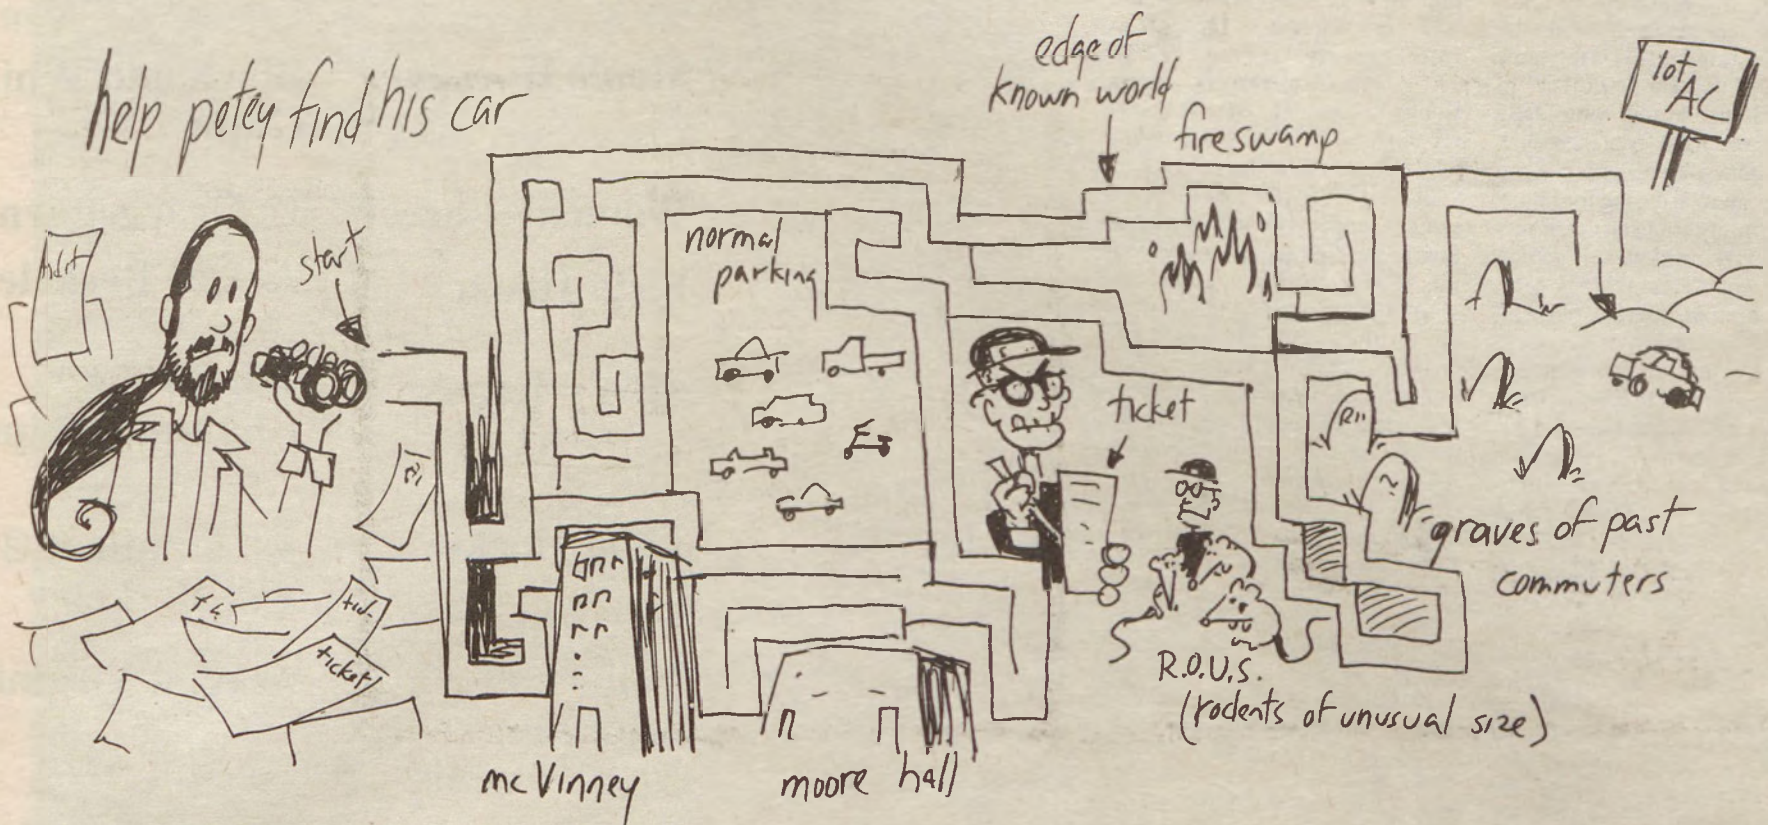 help petey find his car
edge of
known world
fireswamp
lot
AC
ticket
start
normal
parking
ticket
graves of past
commuters
ticket
R.O.U.S.
(rodents of unusual size)
mcVinney
moore hall